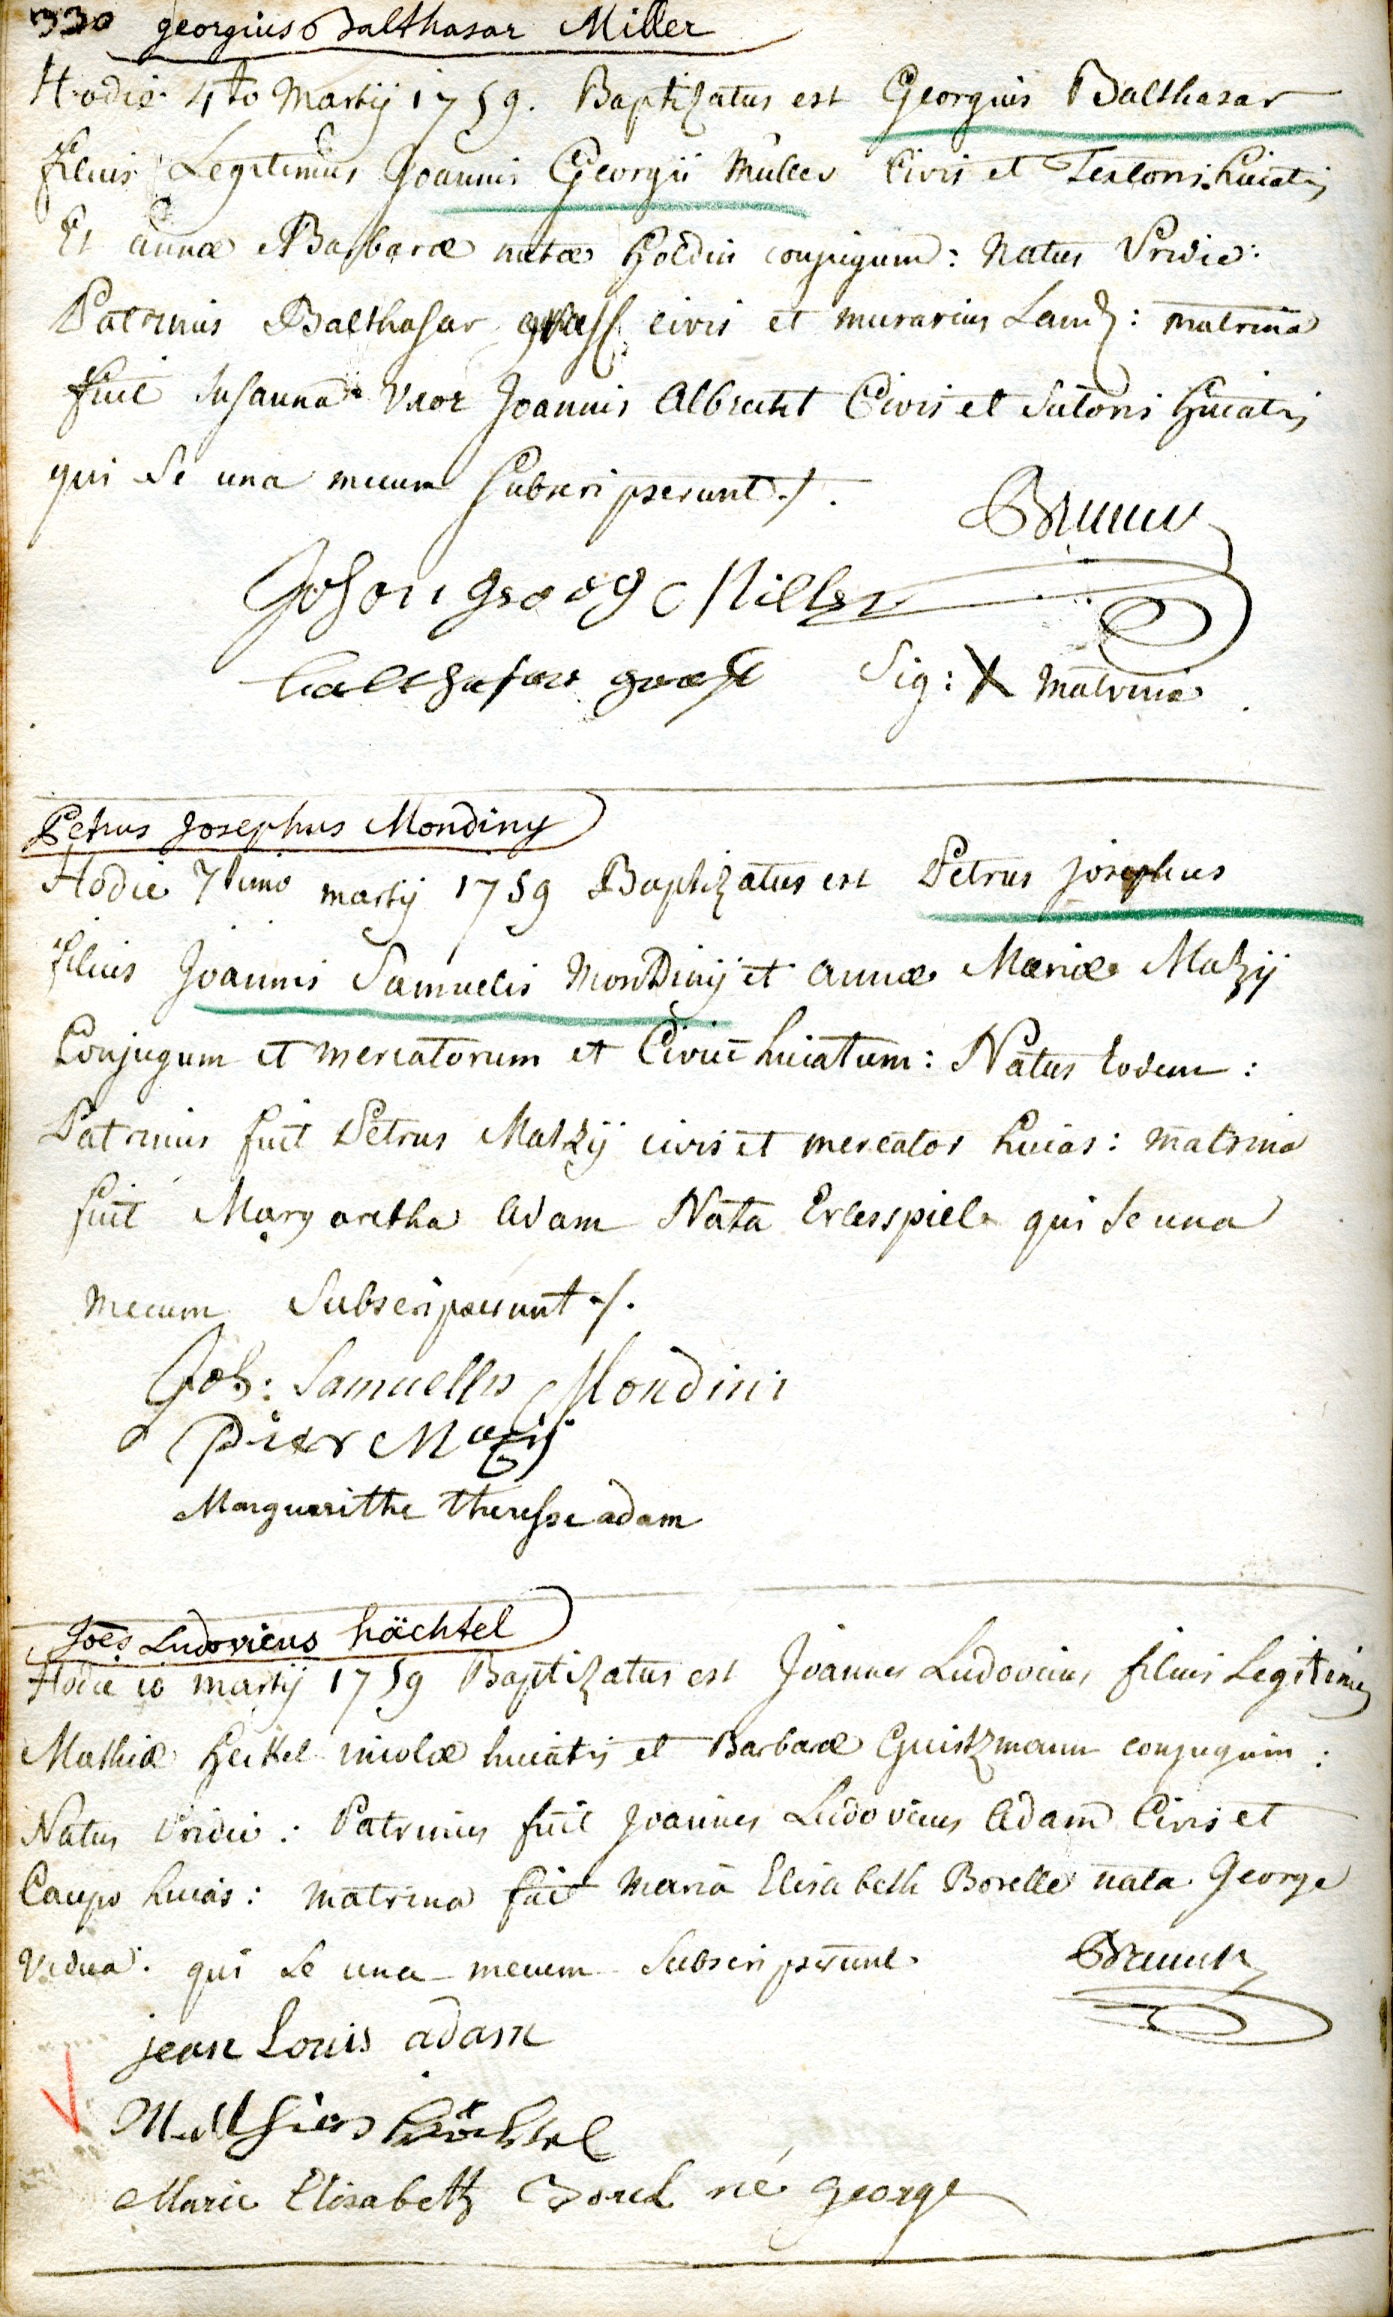 330 georgius Balthasar Miller
Hodie 4to Martij 1759. Baptizatus est Georgius Balthasar
filius Legitimus Joannis Georgii Müller Civis et Textoris huiatis
Et annæ Barbaræ natæ Holdin conjugum: Natus Pridie:
Patrinus Balthasar civis et murarius Land: matrina
fuit Susanna Uxor Joannis Albrecht Civis et Sutoris huiatis
qui Se una mecum Subscripserunt ./.
Johan georg Miller
balthasar grass Sig: X Matrina
Petrus Josephus Mondiny
Hodie 7timo martij 1759 Baptizatus est Petrus josephus
filius Joannis Samuelis Mondinij et annæ Mariæ Matzij
Conjugum et mercatorum et Civiū huiatum: Natus Eodem:
Patrinus fuit Petrus Matzij civis et mercator huias: matrina
fuit Margaretha Adam Nata Erlesspiel qui Se una
mecum Subscripserunt ./.
Joh: Samuelles Mondini
Pier Mazij
Marguerithe theresse adam
Joēs Ludovicus hächtel
Hodie 10 martij 1759 Baptizatus est Joannes Ludovicus filius Legitimus
Mathiæ Heckel incolæ huiatis et Barbaræ conjugum:
Natus Pridie: Patrinus fuit Joannes Ludovicus Adam Civis et
Caupo huias: matrina fuit Maria Elisabeth Borelle nata George
Vidua: qui Se una mecum Subscripserunt.
jean Louis adam
Mathias
Marie Elisabeth Borel né george